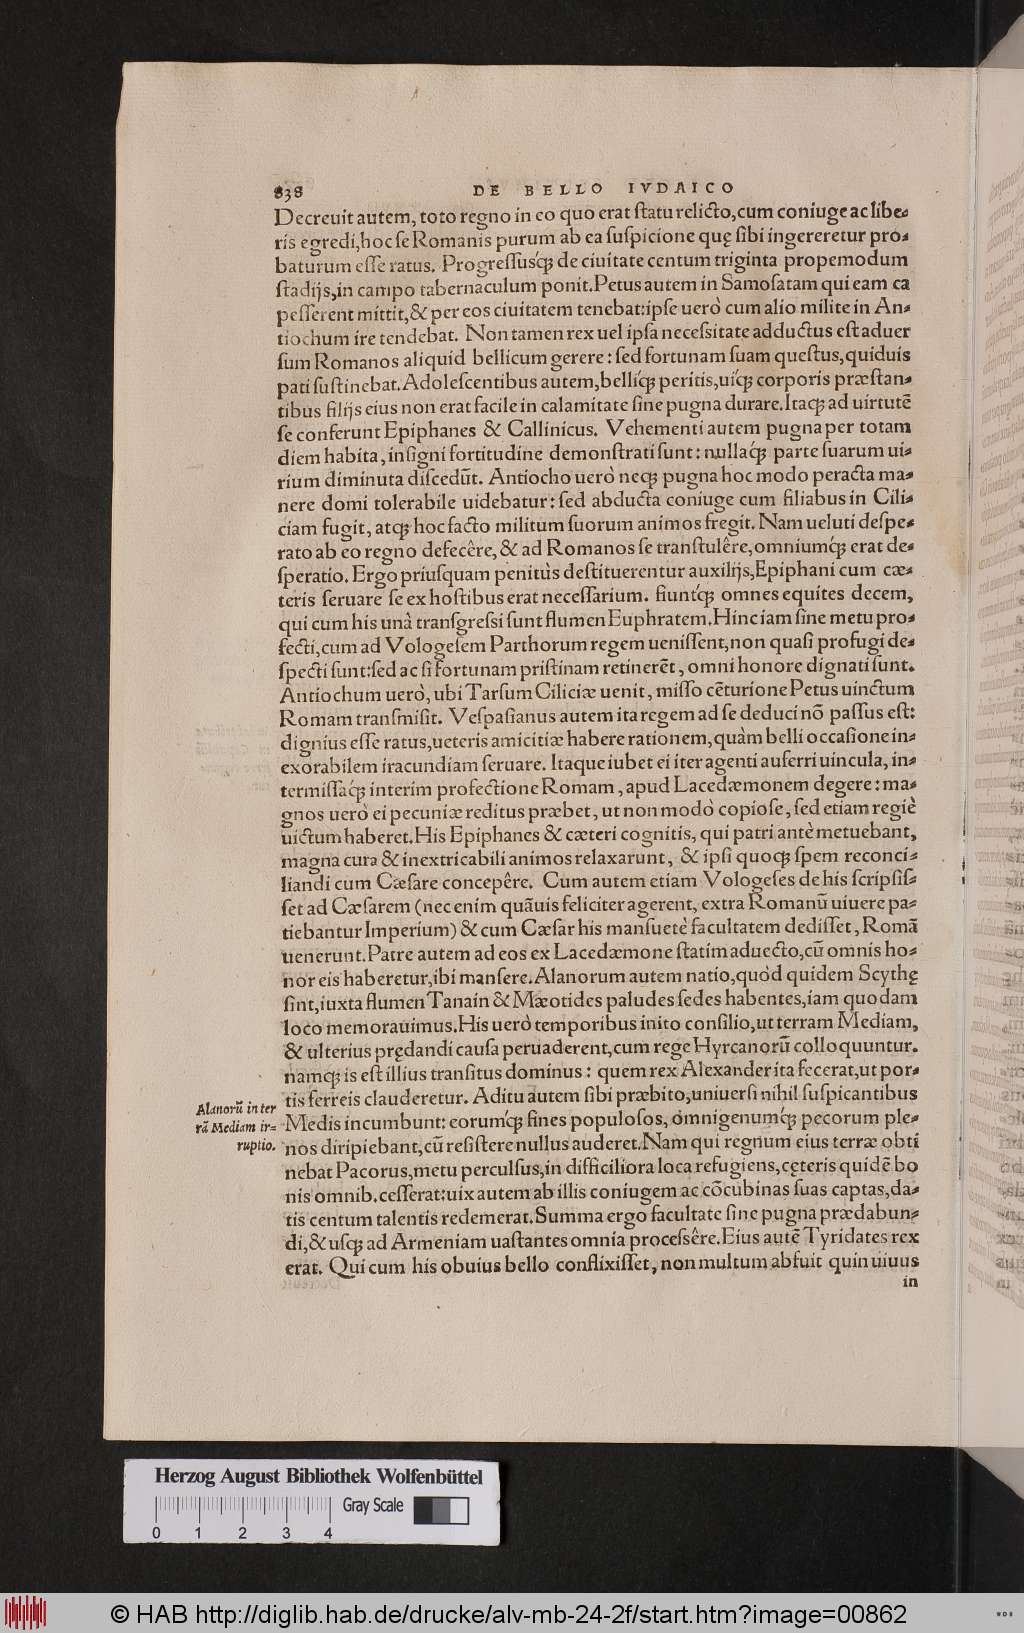 838 DE BELLO IVDAICO
Decreuit autem, toto regno in eo quo erat ſtatu relicto, cum coniuge ac libe⸗
ris egredi, hoc ſe Romanis purum ab ea ſuſpicione quę ſibi ingereretur pro⸗
baturum eſſe ratus. Progreſſusq́ꝫ de ciuitate centum triginta propemodum
ſtadijs, in campo tabernaculum ponit. Petus autem in Samoſatam qui eam ca
peſſerent mittit, & per eos ciuitatem tenebat: ipſe uerò cum alio milite in An⸗
tiochum ire tendebat. Non tamen rex uel ipſa neceſsitate adductus eſt aduer
ſum Romanos aliquid bellicum gerere: ſed fortunam ſuam queſtus, quiduis
pati ſuſtinebat. Adoleſcentibus autem, belliq́ꝫ peritis, uiq́ꝫ corporis præſtan⸗
tibus filijs eius non erat facile in calamitate ſine pugna durare. Itaqꝫ ad uirtutẽ
ſe conferunt Epiphanes & Callinicus. Vehementi autem pugna per totam
diem habita, inſigni fortitudine demonſtrati ſunt: nullaq́ꝫ parte ſuarum ui⸗
rium diminuta diſcedũt. Antiocho uerò neqꝫ pugna hoc modo peracta ma⸗
nere domi tolerabile uidebatur: ſed abducta coniuge cum filiabus in Cili⸗
ciam fugit, atqꝫ hoc facto militum ſuorum animos fregit. Nam ueluti deſpe⸗
rato ab eo regno defecêre, & ad Romanos ſe tranſtulêre, omniumq́ꝫ erat de⸗
ſperatio. Ergo priuſquam penitùs deſtituerentur auxilijs, Epiphani cum cæ⸗
teris ſeruare ſe ex hoſtibus erat neceſſarium. fiuntq́ꝫ omnes equites decem,
qui cum his unà tranſgreſsi ſunt flumen Euphratem. Hinc iam ſine metu pro⸗
fecti, cum ad Vologeſem Parthorum regem ueniſſent, non quaſi profugi de⸗
ſpecti ſunt: ſed ac ſi fortunam priſtinam retinerẽt, omni honore dignati ſunt.
Antiochum uerò, ubi Tarſum Ciliciæ uenit, miſſo cẽturione Petus uinctum
Romam tranſmiſit. Veſpaſianus autem ita regem ad ſe deduci nõ paſſus eſt:
dignius eſſe ratus, ueteris amicitiæ habere rationem, quàm belli occaſione in⸗
exorabilem iracundiam ſeruare. Itaque iubet ei iter agenti auferri uincula, in⸗
termiſſaq́ꝫ interim profectione Romam, apud Lacedæmonem degere: ma⸗
gnos uerò ei pecuniæ reditus præbet, ut non modò copioſe, ſed etiam regiè
uictum haberet. His Epiphanes & cæteri cognitis, qui patri antè metuebant,
magna cura & inextricabili animos relaxarunt, & ipſi quoqꝫ ſpem reconci⸗
liandi cum Cæſare concepêre. Cum autem etiam Vologeſes de his ſcripſiſ⸗
ſet ad Cæſarem (nec enim quãuis feliciter agerent, extra Romanũ uiuere pa⸗
tiebantur Imperium) & cum Cæſar his manſuetè facultatem dediſſet, Romã
uenerunt. Patre autem ad eos ex Lacedæmone ſtatim aduecto, cũ omnis ho⸗
nor eis haberetur, ibi manſere. Alanorum autem natio, quòd quidem Scythę
ſint, iuxta flumen Tanain & Mæotides paludes ſedes habentes, iam quodam
loco memorauimus. His uerò temporibus inito conſilio, ut terram Mediam,
& ulterius prędandi cauſa peruaderent, cum rege Hyrcanorũ colloquuntur.
namqꝫ is eſt illius tranſitus dominus: quem rex Alexander ita fecerat, ut por⸗
tis ferreis clauderetur. Aditu autem ſibi præbito, uniuerſi nihil ſuſpicantibus
Alanorũ in ter
rã Mediam ir⸗
ruptio.
Medis incumbunt: eorumq́ꝫ fines populoſos, omnigenumq́ꝫ pecorum ple⸗
nos diripiebant, cũ reſiſtere nullus auderet. Nam qui regnum eius terræ obti
nebat Pacorus, metu perculſus, in difficiliora loca refugiens, cęteris quidẽ bo
nis omnib. ceſſerat: uix autem ab illis coniugem ac cõcubinas ſuas captas, da⸗
tis centum talentis redemerat. Summa ergo facultate ſine pugna prædabun⸗
di, & uſqꝫ ad Armeniam uaſtantes omnia proceſsêre. Eius autẽ Tyridates rex
erat. Qui cum his obuius bello conflixiſſet, non multum abfuit quin uiuus
in
Herzog August Bibliothek Wolfenbüttel
Gray Scale
0 1 2 3 4
© HAB http://diglib.hab.de/drucke/alv-mb-24-2f/start.htm?image=00862